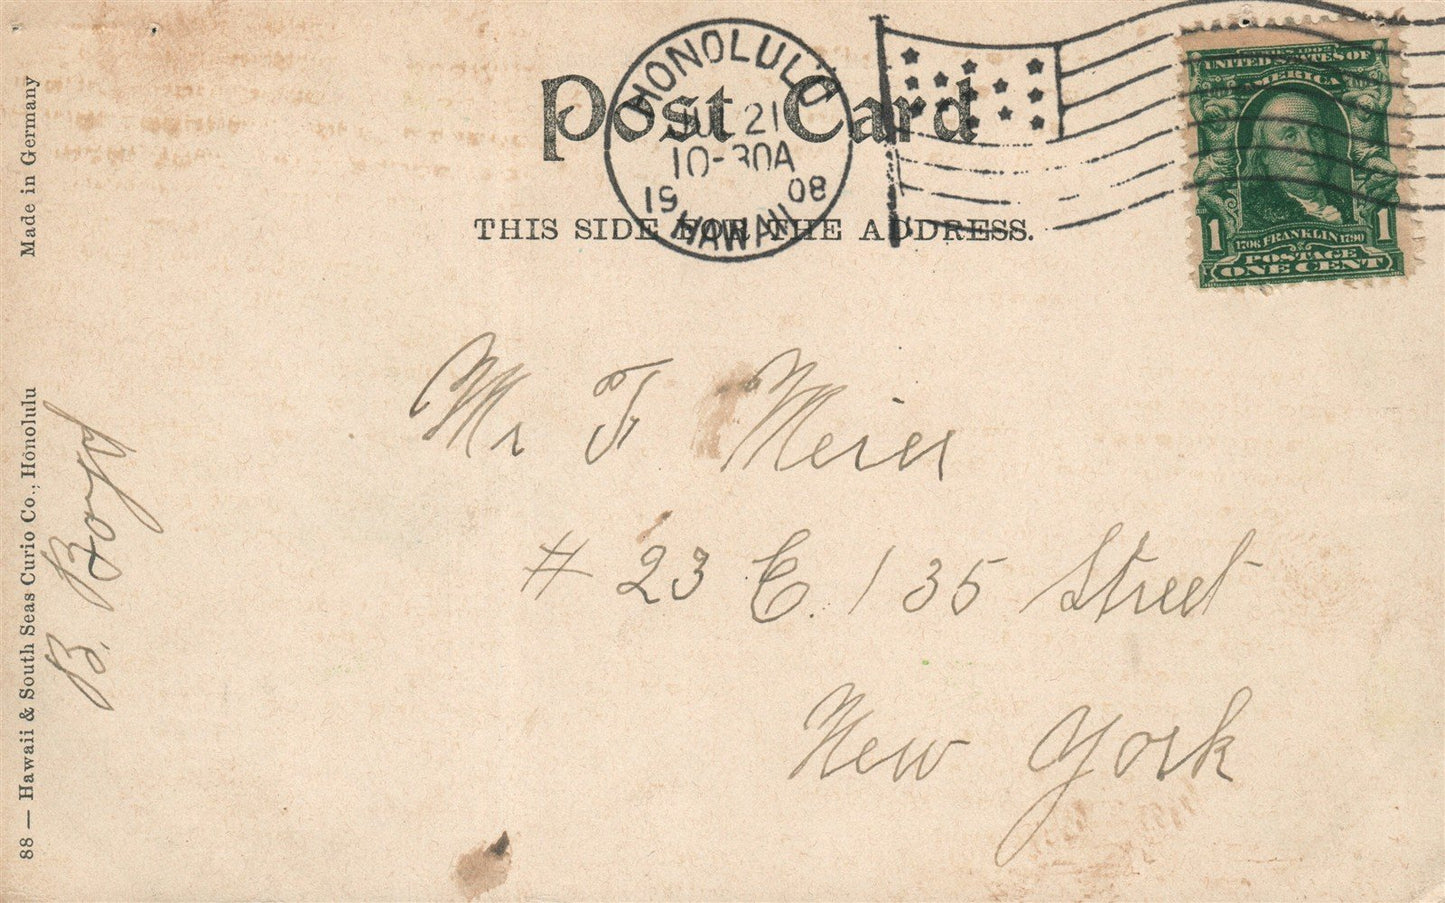 Post Card
HONOLULU
JUL 21
10-30A
1908
HAWAII
SERIES 1902
UNITED STATES OF
AMERICA
1 1
1706 FRANKLIN 1790
POSTAGE
ONE CENT
THIS SIDE FOR THE ADDRESS.
Mr F Meier
# 23 E. 135 Street
New York
B. Boyd
Made in Germany
88 — Hawaii & South Seas Curio Co., Honolulu